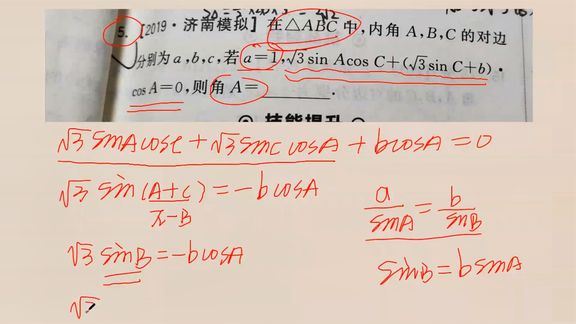 5. [2019·济南模拟] 在△ABC中,内角A,B,C的对边
分别为a,b,c,若a=1,√3sin Acos C+(√3sin C+b)·
cos A=0,则角A=______.
技能提升
√3 sinAcosC+√3 sinCcosA+bcosA=0
√3 sin(A+C)=-bcosA
π-B
a/sinA=b/sinB
√3 sinB=-bcosA
sinB=bsinA
√3